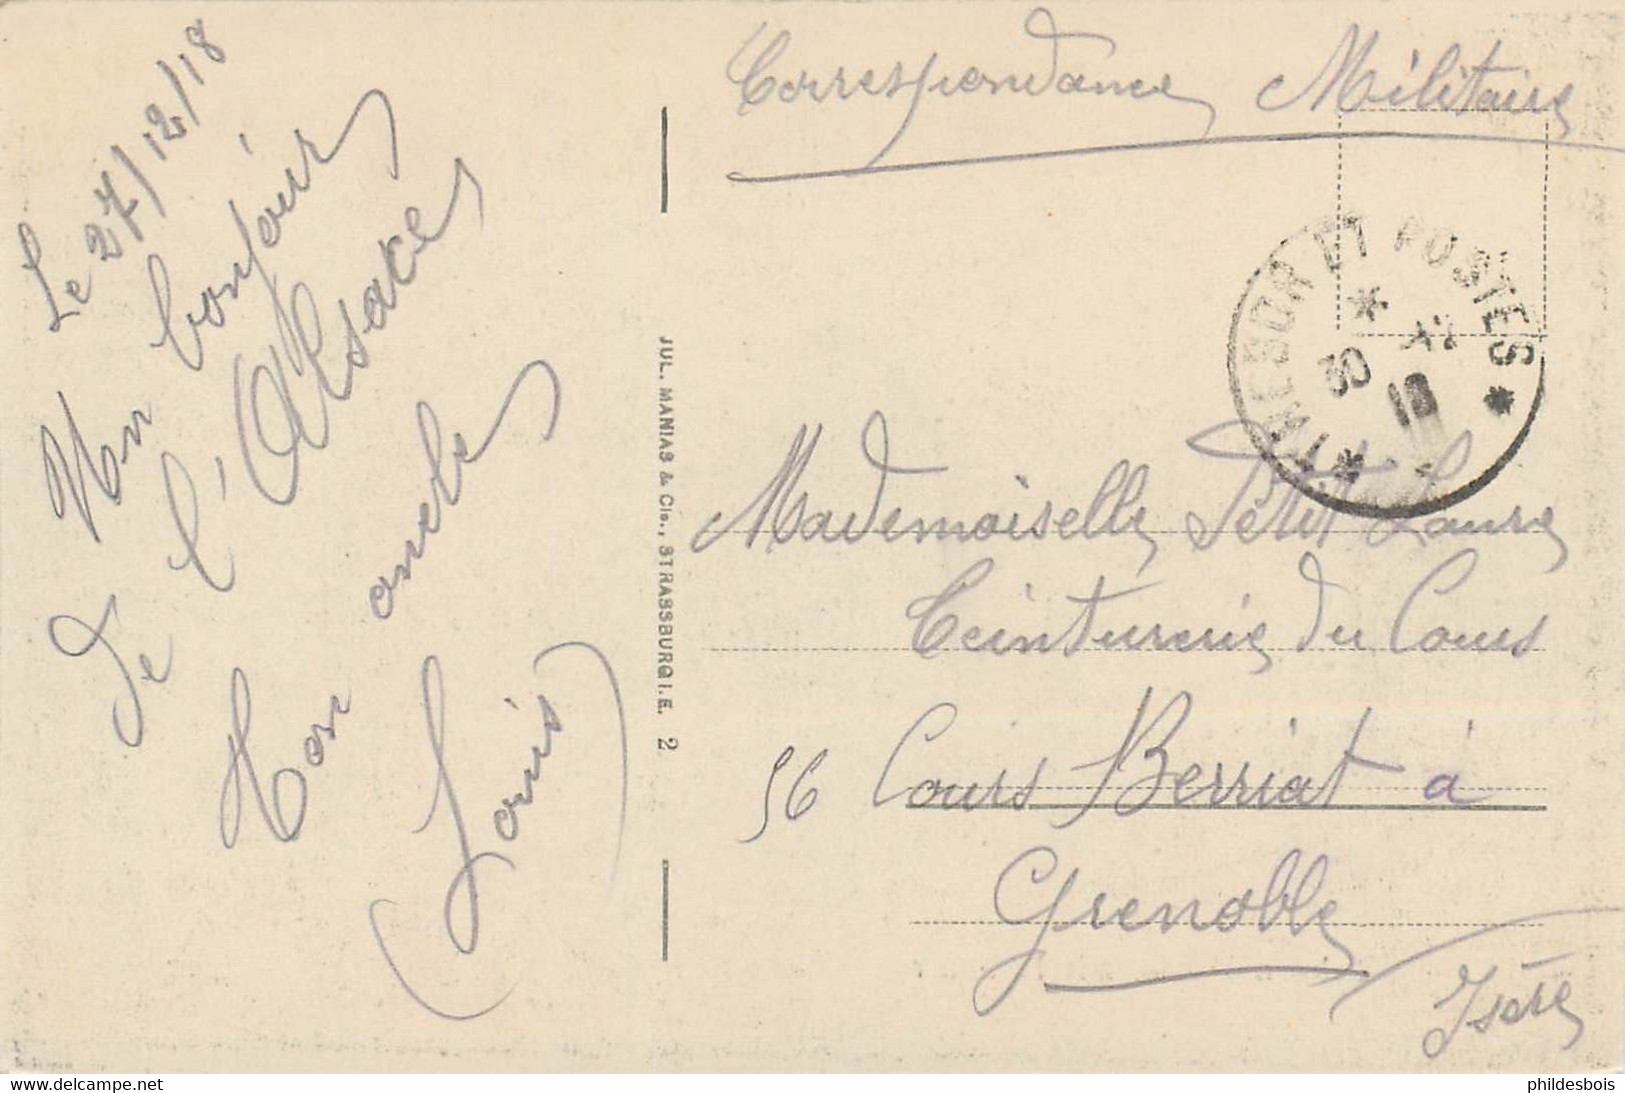 Le 27/12/18
Un bonjour
de l'Alsace
Ton
Louis
JUL. MANIAS & Cie., STRASSBURG I. E. 2
Correspondance Militaire
TRESOR ET POSTES
30
18
Mademoiselle Petit Laure
Teinturerie du Cours
56 Cours Berriat à
Grenoble
Isère
phildesbois